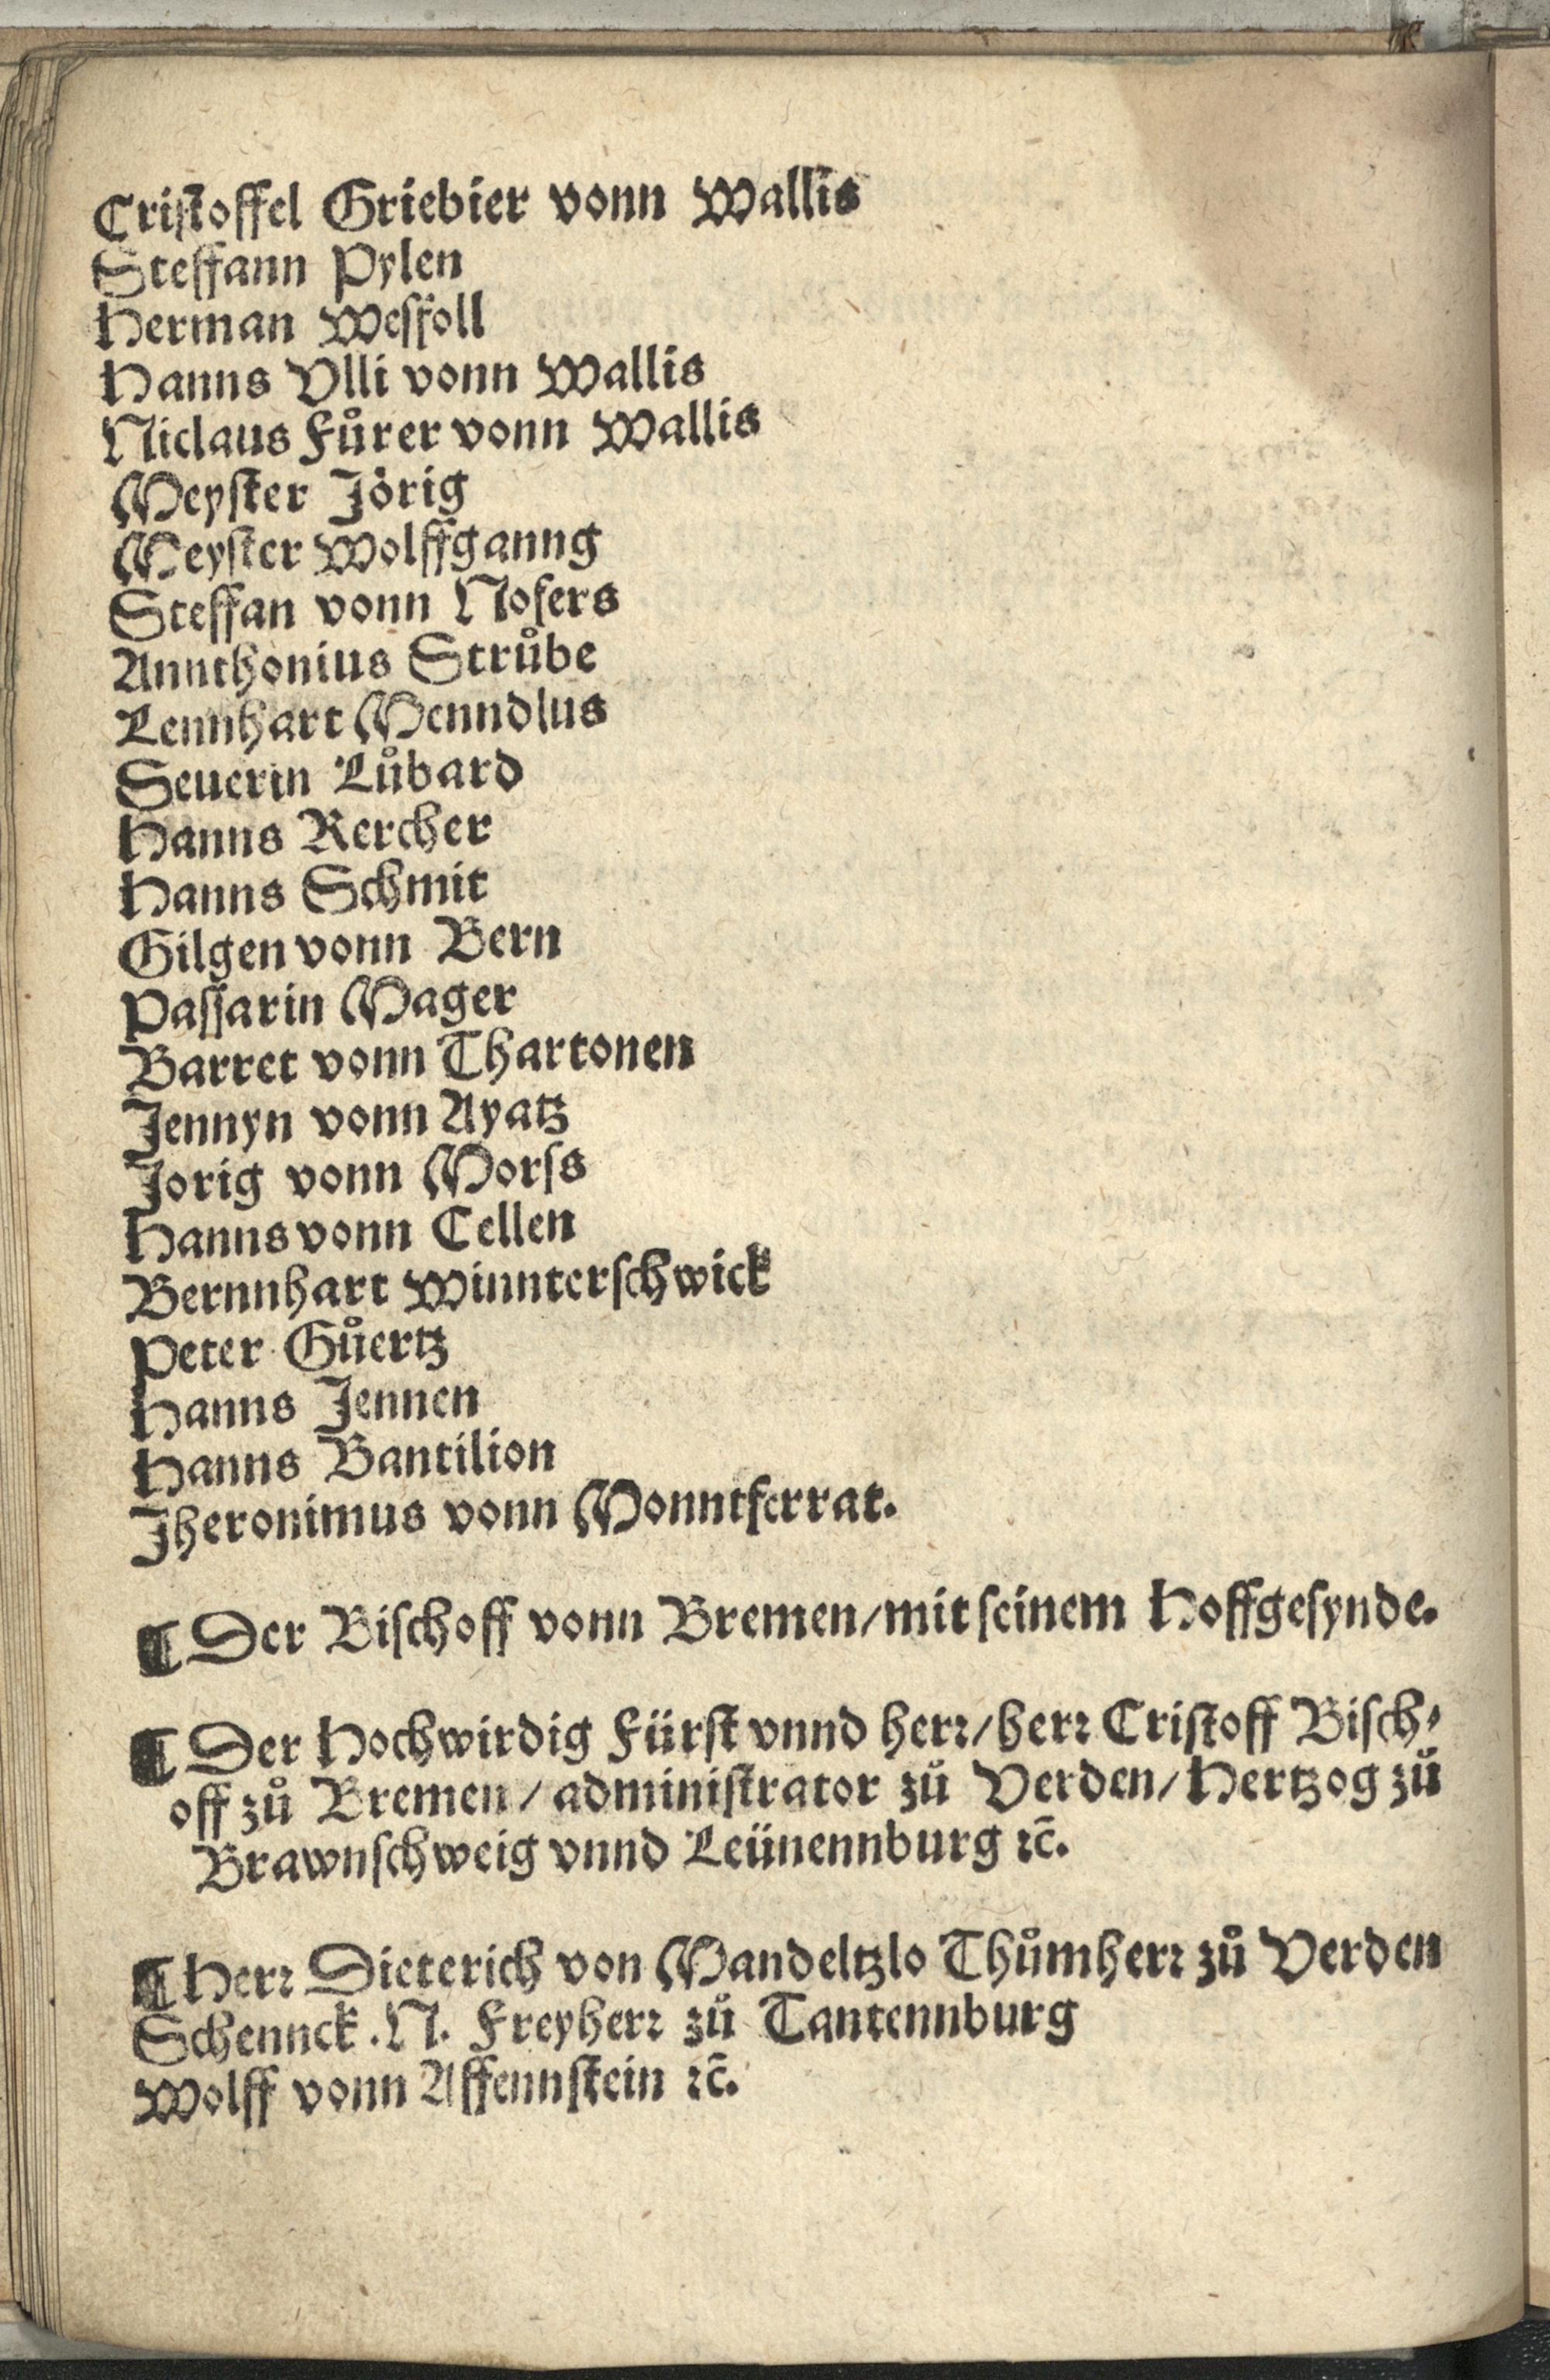 Criſtoffel Griebier vonn Wallis
Steffann Pylen
Herman Weſfoll
Hanns Vlli vonn Wallis
Niclaus Fůrer vonn Wallis
Meyſter Jörig
Meyſter Wolffganng
Steffan vonn Nofers
Annthonius Strůbe
Lennhart Menndlus
Seuerin Lůbard
Hanns Rercher
Hanns Schmit
Gilgen vonn Bern
Paſſarin Mager
Barret vonn Thartonen
Jennyn vonn Ayatz
Jorig vonn Morſs
Hanns vonn Cellen
Bernnhart Winnterſchwick
Peter Gůertz
Hanns Jennen
Hanns Bantilion
Jheronimus vonn Monntferrat.
¶ Der Biſchoff vonn Bremen/mit ſeinem Hoffgeſynde.
¶ Der Hochwirdig Fürſt vnnd herꝛ/herꝛ Criſtoff Biſch⸗
off zů Bremen/adminiſtrator zů Verden/Hertzog zů
Brawnſchweig vnnd Leünennburg ꝛc̄.
¶ Herꝛ Dieterich von Mandeltzlo Thůmherꝛ zů Verden
Schennck .N. Freyherꝛ zů Tantennburg
Wolff vonn Affennſtein ꝛc̄.